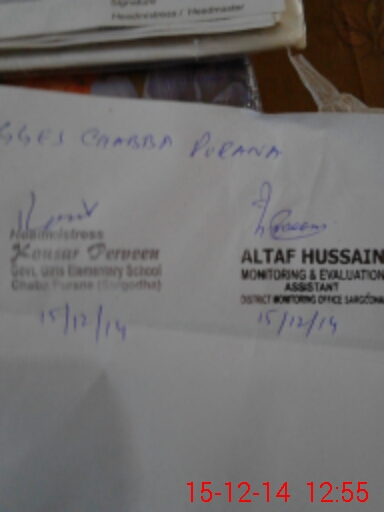 Signature
Headmistress / Headmaster
GGES CHABBA PURANA
Headmistress
Kousar Perveen
Govt. Girls Elementary School
Chaba Purana (Sargodha)
15/12/14
ALTAF HUSSAIN
MONITORING & EVALUATION
ASSISTANT
DISTRICT MONITORING OFFICE SARGODHA
15/12/14
15-12-14 12:55